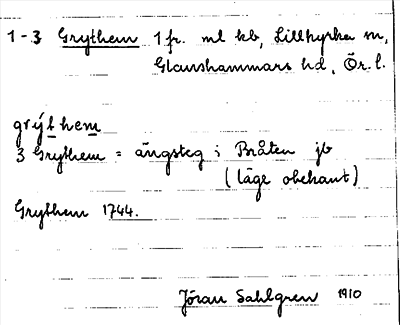 1-3 Grythem 1 fr. ml kb, Lillkyrka sn,
Glanshammars hd, Ör. l.
grýthem
3 Grythem = ängsteg i Bråten jb
(läge obekant)
Grythem 1744.
Jöran Sahlgren 1910